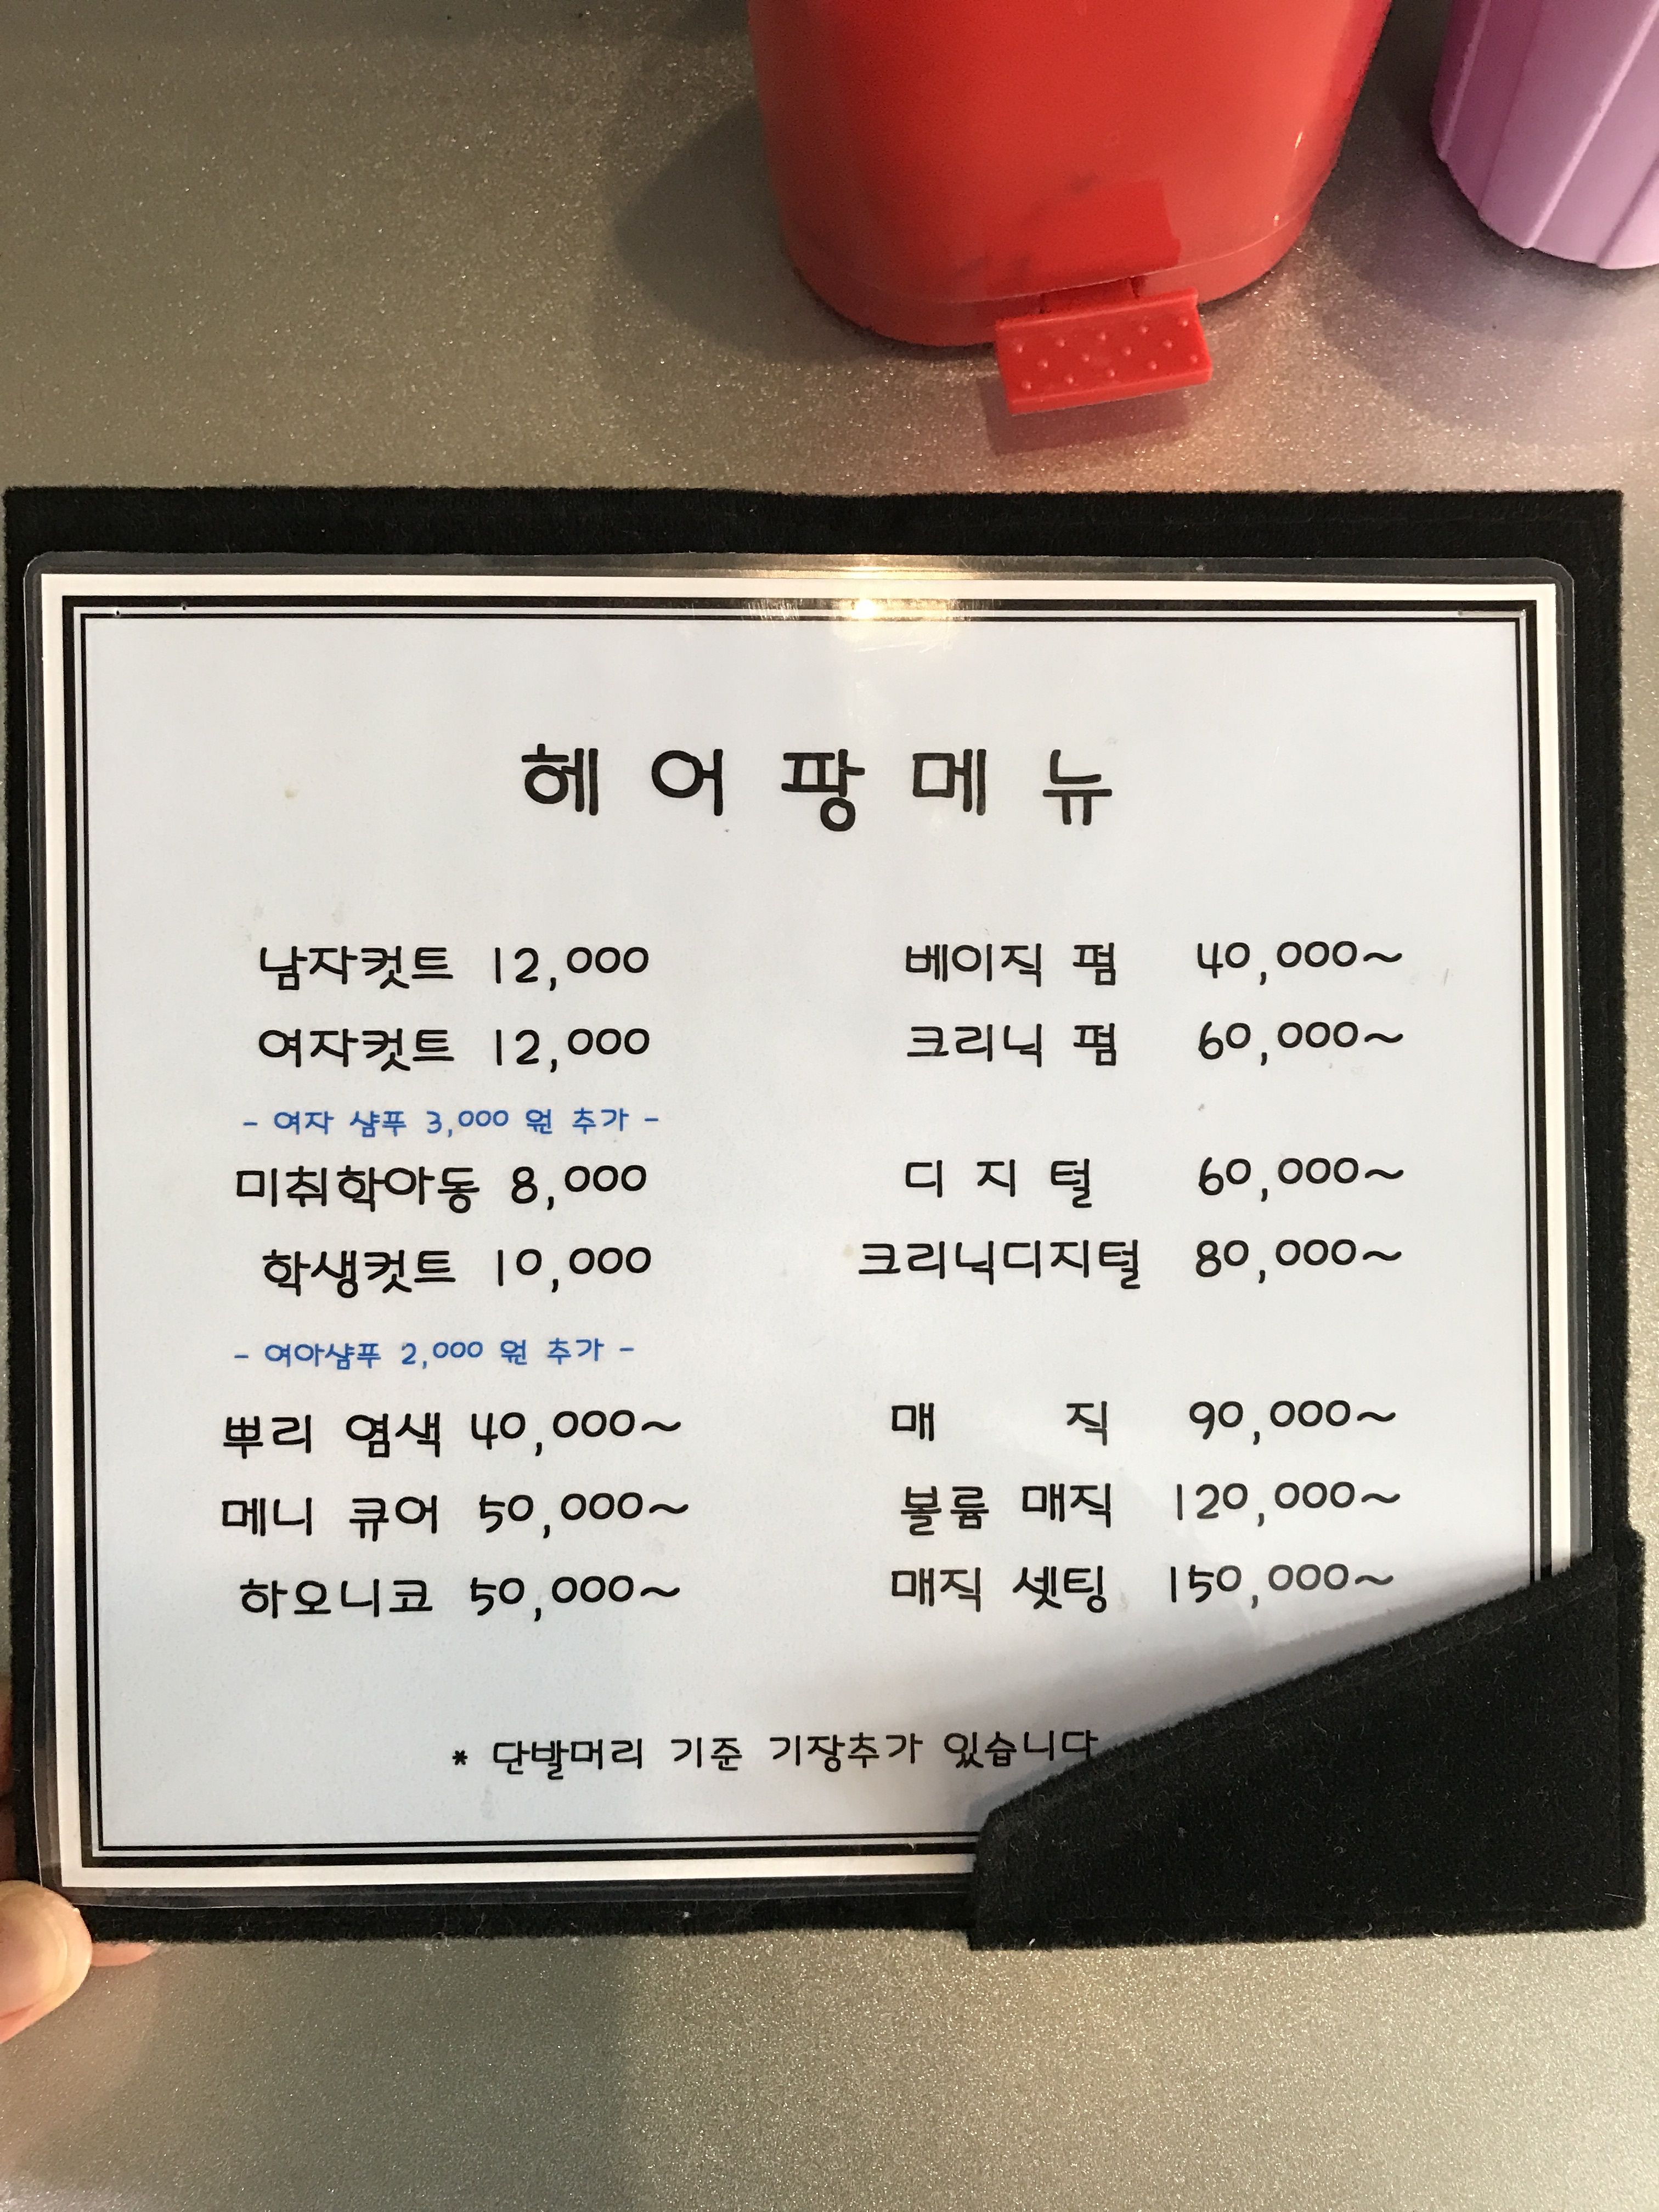 헤어팡메뉴
남자컷트 12,000
여자컷트 12,000
- 여자 샴푸 3,000 원 추가 -
미취학아동 8,000
학생컷트 10,000
- 여아샴푸 2,000 원 추가 -
뿌리 염색 40,000~
메니 큐어 50,000~
하오니코 50,000~
베이직 펌 40,000~
크리닉 펌 60,000~
디 지 털 60,000~
크리닉디지털 80,000~
매 직 90,000~
볼륨 매직 120,000~
매직 셋팅 150,000~
* 단발머리 기준 기장추가 있습니다